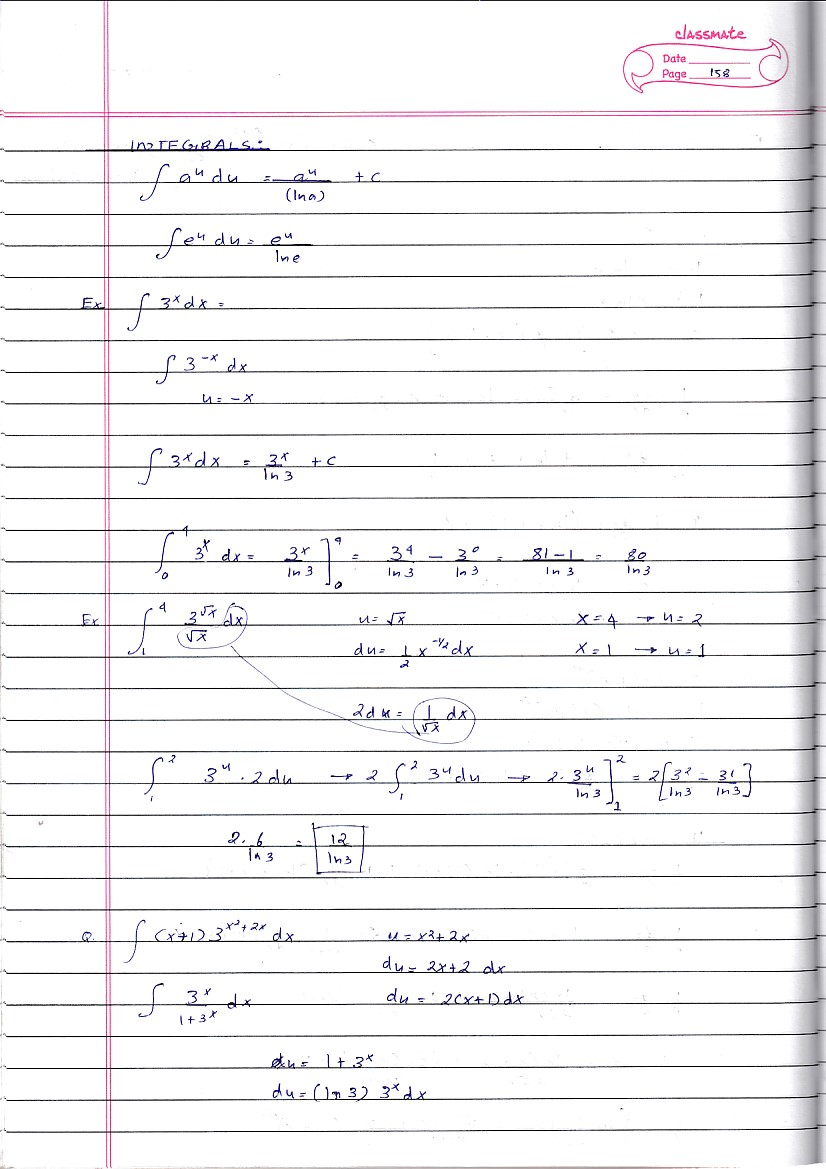 classmate
Date
Page 158
INTEGRALS:
∫ a^u du = a^u/(ln a) + c
∫ e^u du = e^u/ln e
Ex. ∫ 3^x dx =
∫ 3^-x dx
u = -x
∫ 3^x dx = 3^x/ln 3 + c
∫_0^4 3^x dx = 3^x/ln 3 ]_0^4 = 3^4/ln 3 - 3^0/ln 3 = 81-1/ln 3 = 80/ln 3
Ex ∫_1^4 3^√x/√x dx u = √x x = 4 → u = 2
du = 1/2 x^-1/2 dx x = 1 → u = 1
2du = 1/√x dx
∫_1^2 3^u · 2 du → 2 ∫_1^2 3^u du → 2 · 3^u/ln 3 ]_1^2 = 2[3^2/ln 3 - 3^1/ln 3]
2 · 6/ln 3 = 12/ln 3
Q. ∫ (x+1) 3^x²+2x dx u = x²+2x
du = 2x+2 dx
∫ 3^x/1+3^x dx du = 2(x+1)dx
u = 1+3^x
du = (ln 3) 3^x dx